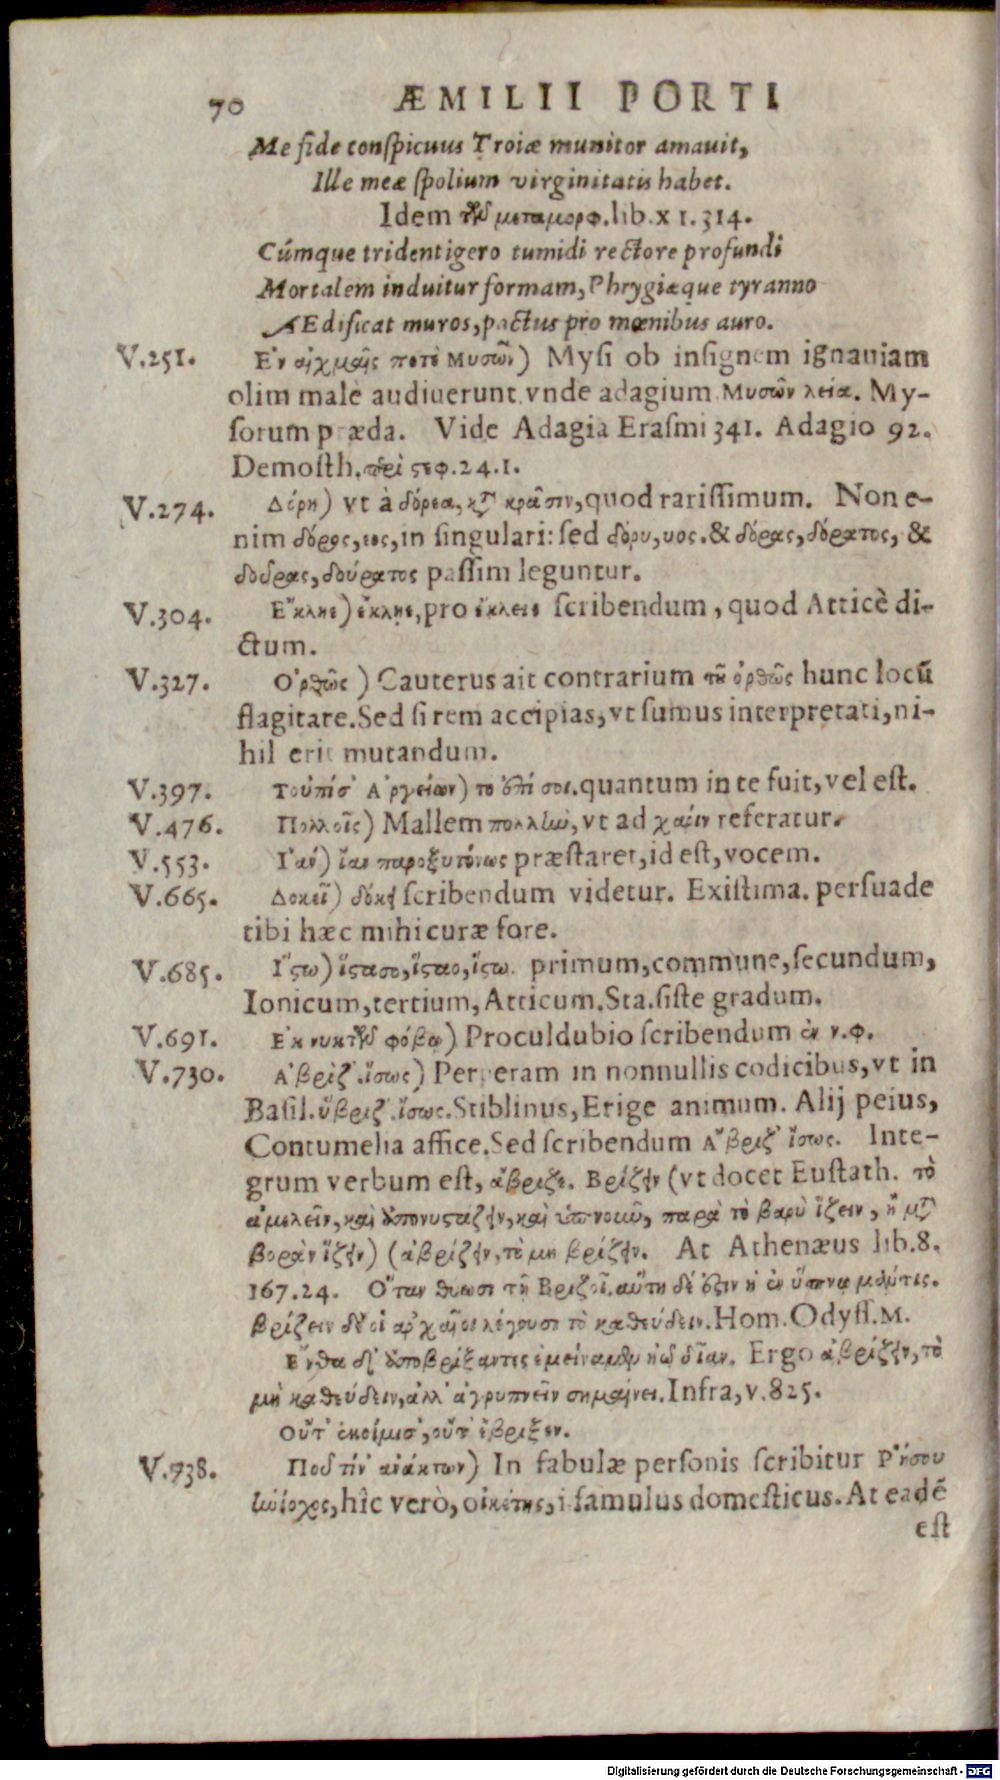 70 ÆMILII PORTI
Me fide conſpicuus Troiæ munitor amauit,
Ille meæ ſpolium virginitatis habet.
Idem τῶν μεταμορφ. lib. XI. 314.
Cúmque tridentigero tumidi rectore profundi
Mortalem induitur formam, Phrygiæque tyranno
AEdificat muros, pactus pro mœnibus auro.
V.251. Ἐν αἰχμαῖς ποτὲ Μυσῶν) Myſi ob inſignem ignauiam
olim malè audiuerunt vnde adagium Μυσῶν λεία. My-
ſorum præda. Vide Adagia Eraſmi 341. Adagio 92.
Demoſth. περὶ στεφ. 24.1.
V.274. Δόρη) vt à δόρεα, κατὰ κρᾶσιν, quod rariſſimum. Non e-
nim δόρος, εος, in ſingulari: ſed δόρυ, υος. & δόρας, δόρατος, &
δοῦρας, δούρατος paſſim leguntur.
V.304. Ἔκλῃε) ἔκλῃε, pro ἔκλειε ſcribendum, quod Atticè di-
ctum.
V.327. Ὀρθῶς) Cauterus ait contrarium τῷ ὀρθῶς hunc locū
flagitare. Sed ſi rem accipias, vt ſumus interpretati, ni-
hil erit mutandum.
V.397. Τοὐπίσ' Ἀργείων) το ἐπί σοι. quantum in te fuit, vel eſt.
V.476. Πολλοῖς) Mallem πολλὴν, vt ad χαίειν referatur.
V.553. Ἰαν) ἴαν παροξυτόνως præſtaret, id eſt, vocem.
V.665. Δοκεῖ) δόκει ſcribendum videtur. Exiſtima. perſuade
tibi hæc mihi curæ fore.
V.685. Ἵστω) ἵστασο, ἵσταο, ἵστω. primum, commune, ſecundum,
Ionicum, tertium, Atticum. Sta. ſiſte gradum.
V.691. Ἐκ νυκτῶν φόβῳ) Proculdubio ſcribendum ἐν ν.φ.
V.730. Ἀβρίζ'. ἴσως) Perperam in nonnullis codicibus, vt in
Baſil. ὕβριζ'. ἴσως. Stiblinus, Erige animum. Alij peius,
Contumelia affice. Sed ſcribendum Ἄβριζ' ἴσως. Inte-
grum verbum eſt, ἄβριζε. Βρίζειν (vt docet Euſtath. τὸ
ἀμελεῖν, καὶ ὑπονυστάζειν, καὶ ὑπνοῦν, παρὰ τὸ βαρὺ ἵζειν, ἢ μετὰ
βορὰν ἵζειν) (ἀβρίζειν, τὸ μὴ βρίζειν. At Athenæus lib. 8.
167.24. Ὅταν θύωσι τῇ Βριζοῖ. αὕτη δέ ἐστιν ἡ ἐν ὕπνῳ μάντις.
βρίζειν δὲ οἱ ἀρχαῖοι λέγουσι τὸ καθεύδειν. Hom. Odyſſ. M.
Ἔνθα δ' ἀποβρίξαντες ἐμείναμεν ἠῶ δῖαν. Ergo ἀβρίζειν, τὸ
μὴ καθεύδειν, ἀλλ' ἀγρυπνεῖν σημαίνει. Infra, v. 825.
Οὔτ' ἐκοίμισ', οὔτ' ἔβριξεν.
V.738. Ποῦ τίν' ἀνάκτων) In fabulæ perſonis ſcribitur Ῥήσου
ἡνίοχος, hîc verò, οἰκέτης, i. famulus domeſticus. At eadē
eſt
Digitalisierung gefördert durch die Deutsche Forschungsgemeinschaft - DFG